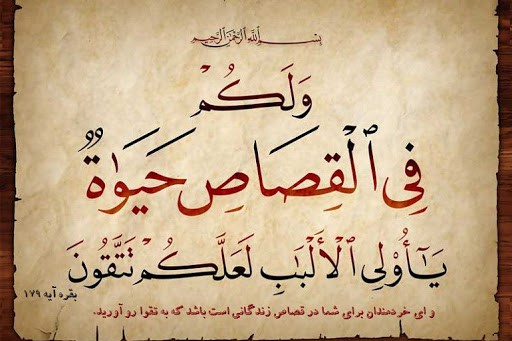 بِسْمِ اللَّهِ الرَّحْمَٰنِ الرَّحِيمِ
وَلَكُمْ
فِي ٱلْقِصَاصِ حَيَوٰةٌ
يَـٰٓأُو۟لِي ٱلْأَلْبَـٰبِ لَعَلَّكُمْ تَتَّقُونَ
بقره آیه ۱۷۹
و ای خردمندان برای شما در قصاص زندگانی است باشد که به تقوا رو آورید.